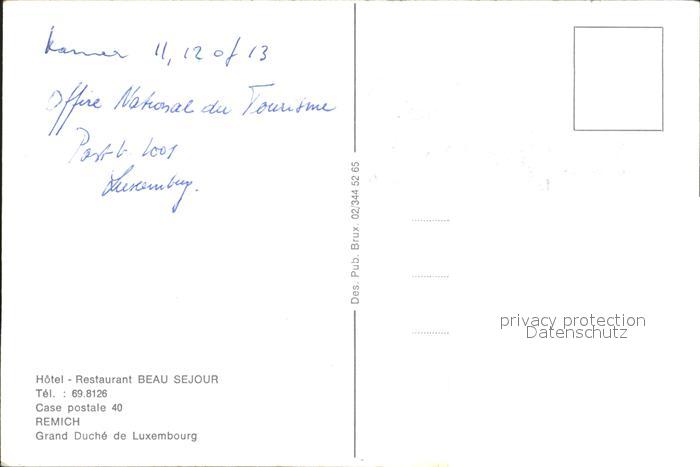 Kamer 11, 12 of 13
Office National du Tourisme
Postb. 1001
Luxemburg.
Hôtel - Restaurant BEAU SEJOUR
Tél. : 69.8126
Case postale 40
REMICH
Grand Duché de Luxembourg
Des. Pub. Brux. 02/344 52 65
privacy protection
Datenschutz